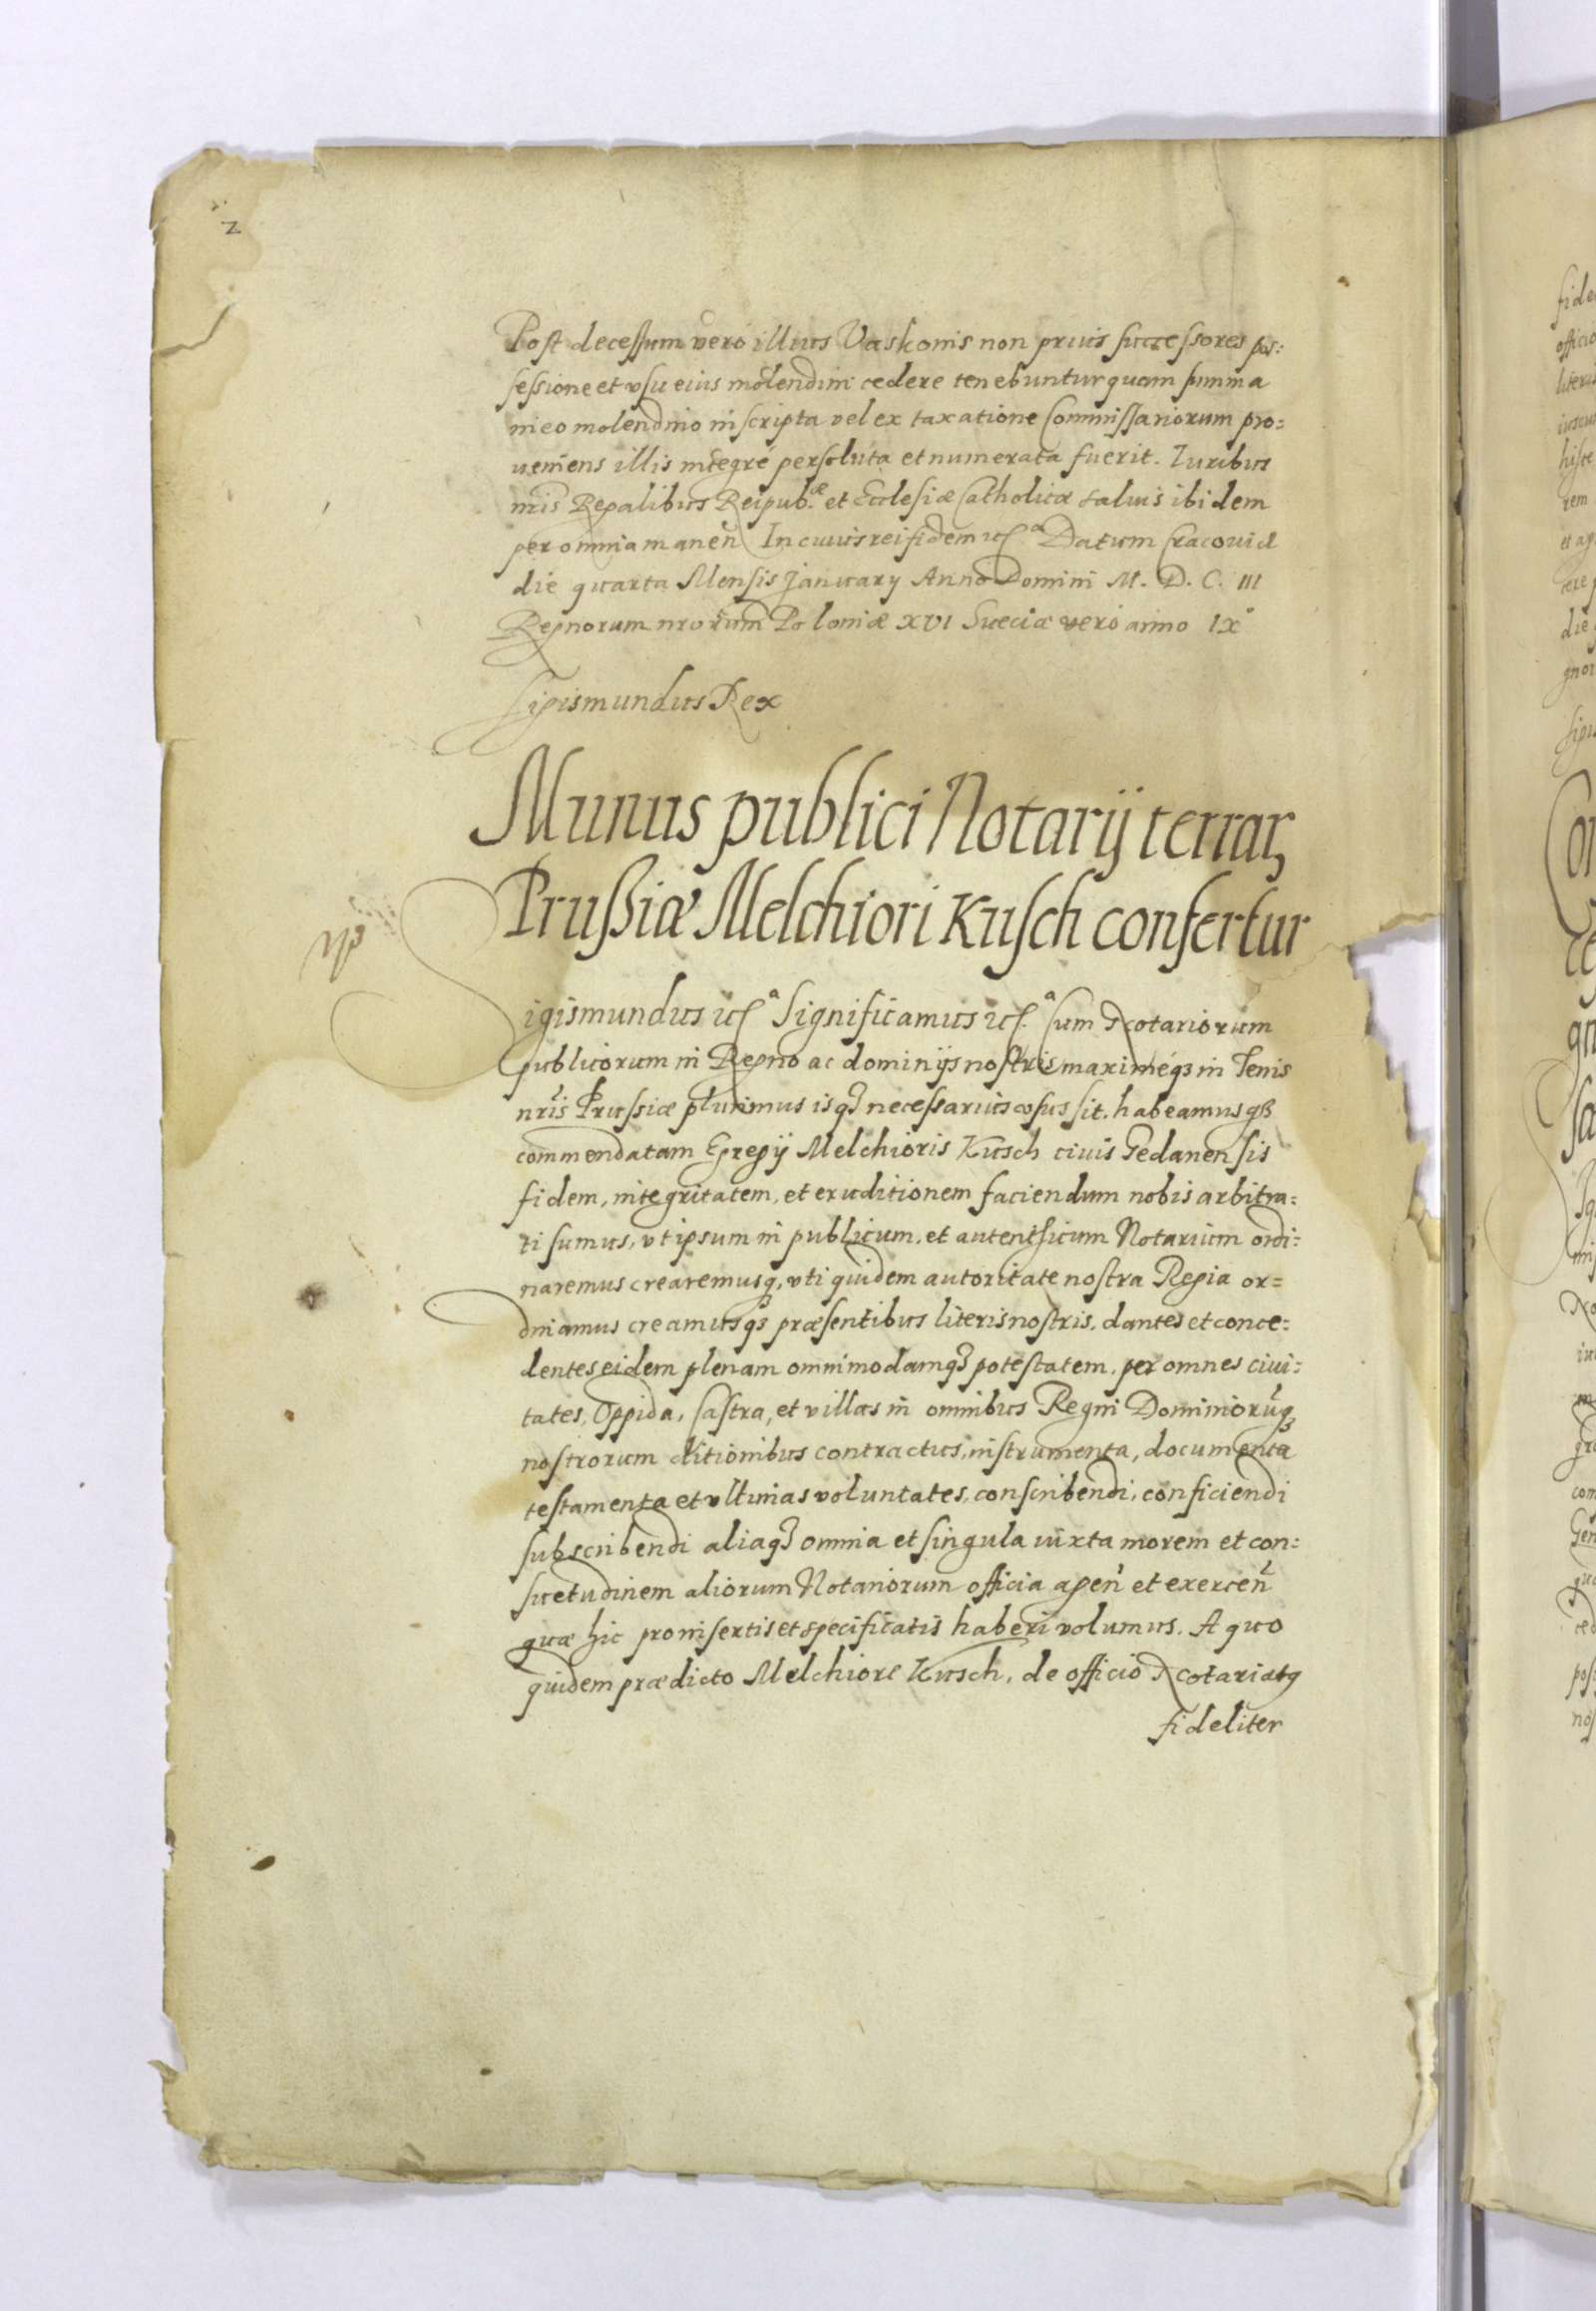 2
Post decessum vero illius Vaskonis non prius successores pos:
sessione et vsu eius molendini cedere tenebuntur quam summa
in eo molendino inscripta vel ex taxatione Commissariorum pro:
ueniens illis integré persoluta et numerata fuerit. Iuribus
nris Regalibus Reipub.æ et Ecclesiæ Catholicæ saluis ibidem
per omnia manen. In cuius rei fidem etc.a Datum Cracouiæ
die quarta Mensis January Anno Domini M. D. C. III
Regnorum nrorum Poloniæ XVI Sueciæ vero anno IX°
Sigismundus Rex
Munus publici Notarij terrar
Prussiæ Melchiori Kusch confertur
Sigismundus etc.a Significamus etc.a Cum Notariorum
publicorum in Regno ac dominijs nostris maximéq3 in Terris
nris Prussiæ plurimus isq3 necessarius vsus sit. habeamusq3
commendatam Egregij Melchioris Kusch ciuis Gedanensis
fidem, integritatem, et eruditionem faciendum nobis arbitra:
ti sumus, vt ipsum in publicum, et autenthicum Notarium ordi:
naremus crearemusq3, vti quidem autoritate nostra Regia or=
dinamus creamusq3 præsentibus literis nostris, dantes et conce:
dentes eidem plenam omnimodamq3 potestatem, per omnes ciui:
tates, Oppida, Castra, et villas in omnibus Regni Dominiorūq3
nostrorum ditionibus contractus, instrumenta, documenta
testamenta et vltimas voluntates, conscribendi, conficiendi
subscribendi aliaq3 omnia et singula iuxta morem et con:
suetudinem aliorum Notariorum officia agen et exercen
quæ hic pro insertis et specificatis haberi volumus. A quo
quidem prædicto Melchiore Kusch, de officio Notariatq
fideliter